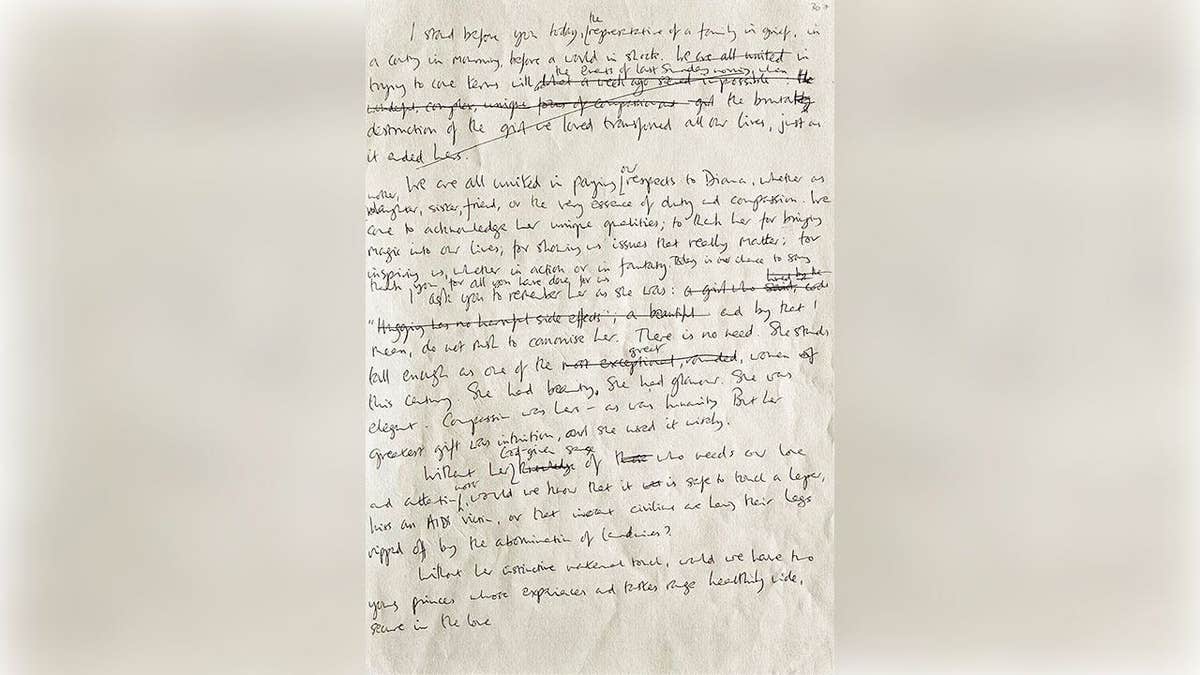 the
I stand before you today, representative of a family in grief, in
a country in mourning, before a world in shock. We are all united in
the events of last Sunday morning, when
trying to come terms with what a week ago seemed impossible: the
complex, unique form of compassion and the brutality
destruction of the girl we loved transformed all our lives, just as
it ended hers.
our
We are all united in paying respects to Diana, whether as
mother,
daughter, sister, friend, or the very essence of duty and compassion. We
come to acknowledge her unique qualities; to thank her for bringing
magic into our lives; for showing us issues that really matter; for
inspiring us, whether in action or in fantasy. Today is our chance to say
thank you, for all you have done for us
I ask you to remember her as she was: a girl who said,
"Hugging has no harmful side effects"; a beautiful and by that I
mean, do not rush to canonise her. There is no need. She stands
great
tall enough as one of the most exceptional, rounded, women of
this century. She had beauty. She had glamour. She was
elegant. Compassion was hers - as was humanity. But her
greatest gift was intuition, and she used it wisely.
God-given sense
Without her knowledge of those who needs our love
most
and attention, would we know that it is safe to touch a leper,
kiss an AIDS victim, or that innocent civilians are having their legs
ripped off by the abomination of landmines?
Without her instinctive maternal touch, would we have two
young princes whose experiences and tastes range healthily wide,
secure in the love